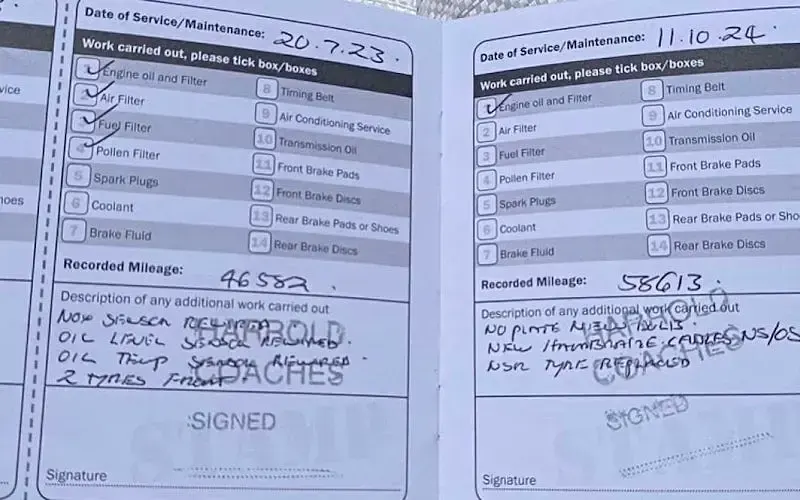 Date of Service/Maintenance: 20.7.23.
Work carried out, please tick box/boxes
1 Engine oil and Filter
2 Air Filter
3 Fuel Filter
4 Pollen Filter
5 Spark Plugs
6 Coolant
7 Brake Fluid
8 Timing Belt
9 Air Conditioning Service
10 Transmission Oil
11 Front Brake Pads
12 Front Brake Discs
13 Rear Brake Pads or Shoes
14 Rear Brake Discs
Recorded Mileage: 46582.
Description of any additional work carried out
NOX SENSOR
OIL LEVEL SENSOR
OIL TEMP SENSOR
2 TYRES FRONT
HARROLD
COACHES
SIGNED
Signature
Date of Service/Maintenance: 11.10.24.
Work carried out, please tick box/boxes
1 Engine oil and Filter
2 Air Filter
3 Fuel Filter
4 Pollen Filter
5 Spark Plugs
6 Coolant
7 Brake Fluid
8 Timing Belt
9 Air Conditioning Service
10 Transmission Oil
11 Front Brake Pads
12 Front Brake Discs
13 Rear Brake Pads or Shoe
14 Rear Brake Discs
Recorded Mileage: 58613.
Description of any additional work carried out
NO PLATE
NEW HANDBRAKE CABLES NS/OS
NSR TYRE REPLACED
HARROLD
COACHES
SIGNED
Signature
vice
hoes